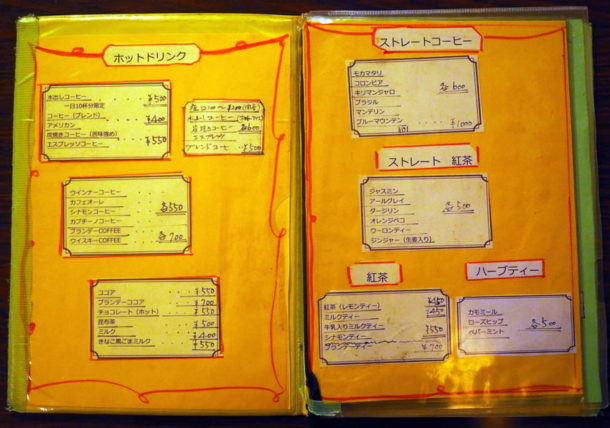 ホットドリンク
水出しコーヒー ¥500
一日10杯分限定
コーヒー（ブレンド） ¥400
アメリカン
炭焼きコーヒー（苦味強め） ¥550
エスプレッソコーヒー
水出しコーヒー
炭焼コーヒー 各600
エスプレッソ
ブレンドコーヒー ¥500
ウインナーコーヒー
カフェオーレ
シナモンコーヒー 各550
カプチーノコーヒー
ブランデーCOFFEE
ウイスキーCOFFEE 各700
ココア ¥550
ブランデーココア ¥700
チョコレート（ホット） ¥550
昆布茶 ¥500
ミルク ¥400
きなこ黒ごまミルク ¥550
ストレートコーヒー
モカマタリ
コロンビア 各600
キリマンジャロ
ブラジル
マンデリン
ブルーマウンテン ¥1000
ストレート 紅茶
ジャスミン
アールグレイ
ダージリン 各500
オレンジペコ
ウーロンティー
ジンジャー（生姜入り）
紅茶
紅茶（レモンティー） ¥450
ミルクティー ¥450
牛乳入りミルクティー ¥550
シナモンティー
ブランデーティー ¥700
ハーブティー
カモミール
ローズヒップ 各500
ペパーミント